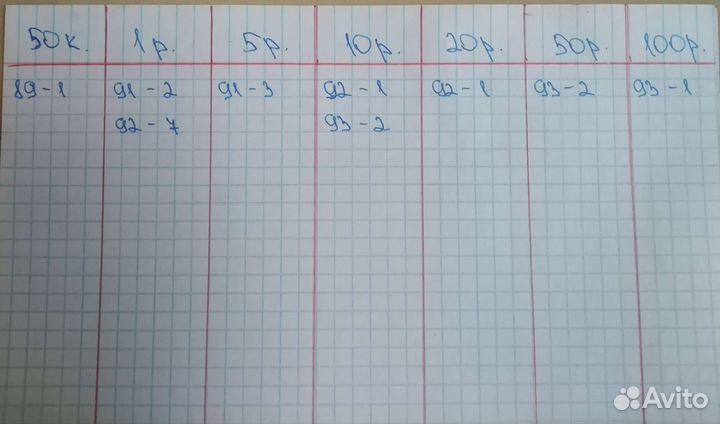 50к. 1р. 5р. 10р. 20р. 50р. 100р.
89-1 91-2 91-3 92-1 92-1 93-2 93-1
92-7 93-2
Avito